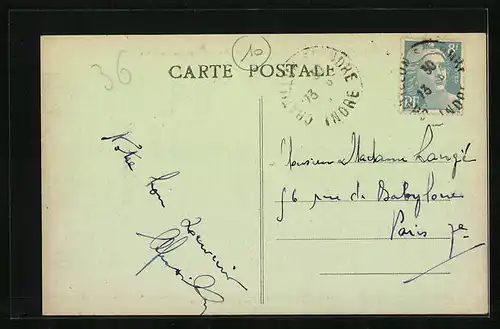 36
10
CARTE POSTALE
INDRE
INDRE
RF
Notre bon souvenir
Monsieur & Madame Langé
56 rue de Babylone
Paris 7e